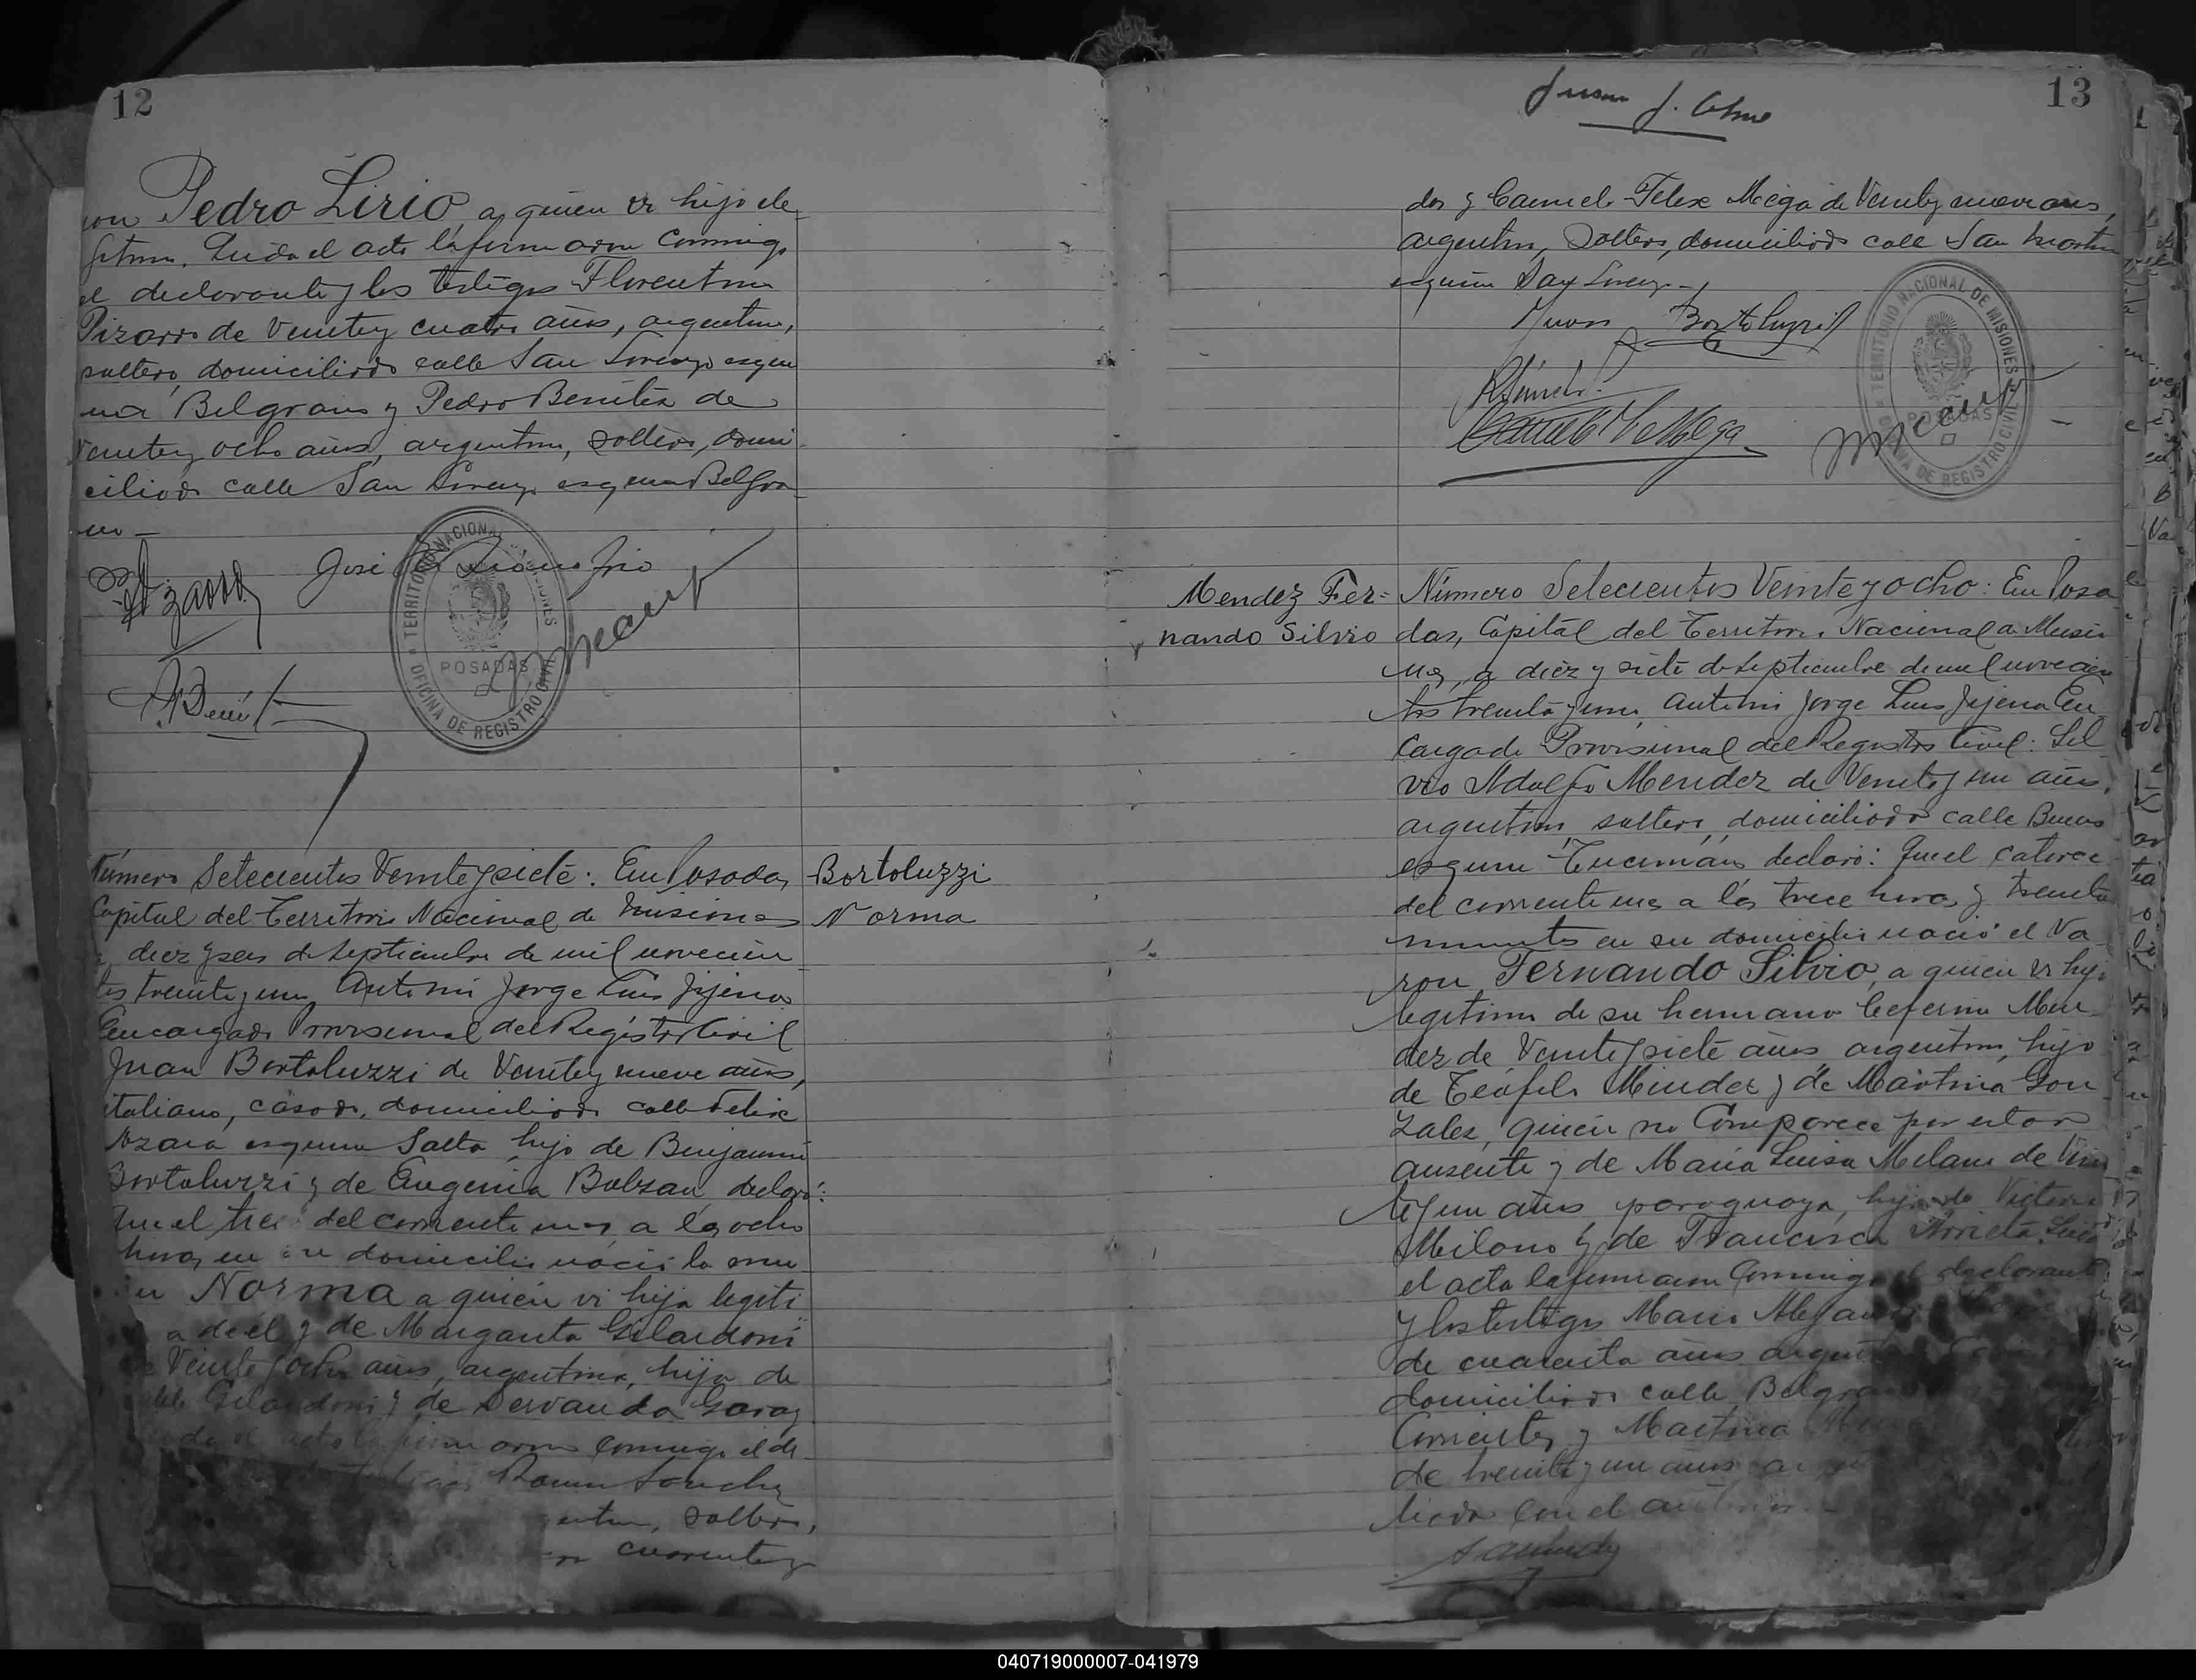 12
ron Pedro Lirio, a quien vi hijo ile
gitimo. Leida el acta la firmaron conmigo
el declarante y los testigos Florentino
Pizarro de veinte y cuatro años, argentino,
soltero, domiciliado calle San Lorenzo esqui
na Belgrano y Pedro Benitez de
veinte y ocho años, argentino, soltero, domi
ciliado calle San Lorenzo esquina Belgra
no —
José
TERRITORIO NACIONAL DE MISIONES
POSADAS
OFICINA DE REGISTRO CIVIL
Bortoluzzi
Norma
Número Setecientos Veinte y siete: En Posadas,
Capital del Territorio Nacional de Misiones
a diez y seis de Septiembre de mil novecien
tos treinta y uno, Ante mi Jorge Luis Jijena
Encargado Provisional del Registro Civil
Juan Bortoluzzi de veinte y nueve años,
italiano, casado, domiciliado calle Felix
Azara esquina Salta, hijo de Benjamin
Bortoluzzi y de Eugenia Balzan declaró:
Que el trece del corriente mes, a las ocho
horas, en su domicilio nació la mu
Norma a quien vi hija legiti
a de él y de Margarita Gilardoni
de Veinte y ocho años, argentina, hija de
Gilardoni y de Servanda Garay
acta la firmaron conmigo el de
Ramon Sanchez
soltero,
cuarenta y
13
Juan J.
dos y Carmelo Felix Mega de Veinte y nueve años,
argentino, soltero, domiciliado calle San Martin
esquina San Lorenzo —
Juan Bortoluzzi
TERRITORIO NACIONAL DE MISIONES
POSADAS
OFICINA DE REGISTRO CIVIL
Mendez Fer=
nando Silvio
Número Setecientos Veinte y ocho: En Posa
das, Capital del Territorio Nacional de Misio
nes, a diez y siete de Septiembre de mil novecien
tos treinta y uno, ante mi Jorge Luis Jijena En
cargado Provisional del Registro Civil: Sil
vio Adolfo Mendez de Veinte y un años,
argentino, soltero, domiciliado calle Buenos
esquina Tucumán, declaró: Que el catorce
del corriente mes a las trece horas y treinta
minutos en su domicilio nació el Va
ron Fernando Silvio, a quien vi hijo
legitimo de su hermano Ceferino Men
dez de Veinte y siete años argentino, hijo
de Teófilo Mendez y de Martina Gon
zalez, quien no comparece por estar
ausente y de Maria Luisa Milano de Vein
te y un años paraguaya, hija de
Milano y de Francisca Arrieta. Leida
el acta la firmaron conmigo el declarante
y los testigos Mario
de cuarenta años
domiciliado calle Belgrano
Corrientes y Martina
de treinta y un años
liada con el anterior. —